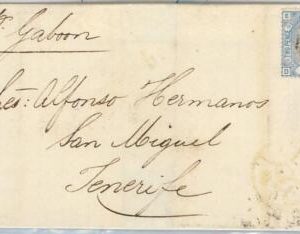 Gaboon
Alfonso Hermanos
San Miguel
Tenerife